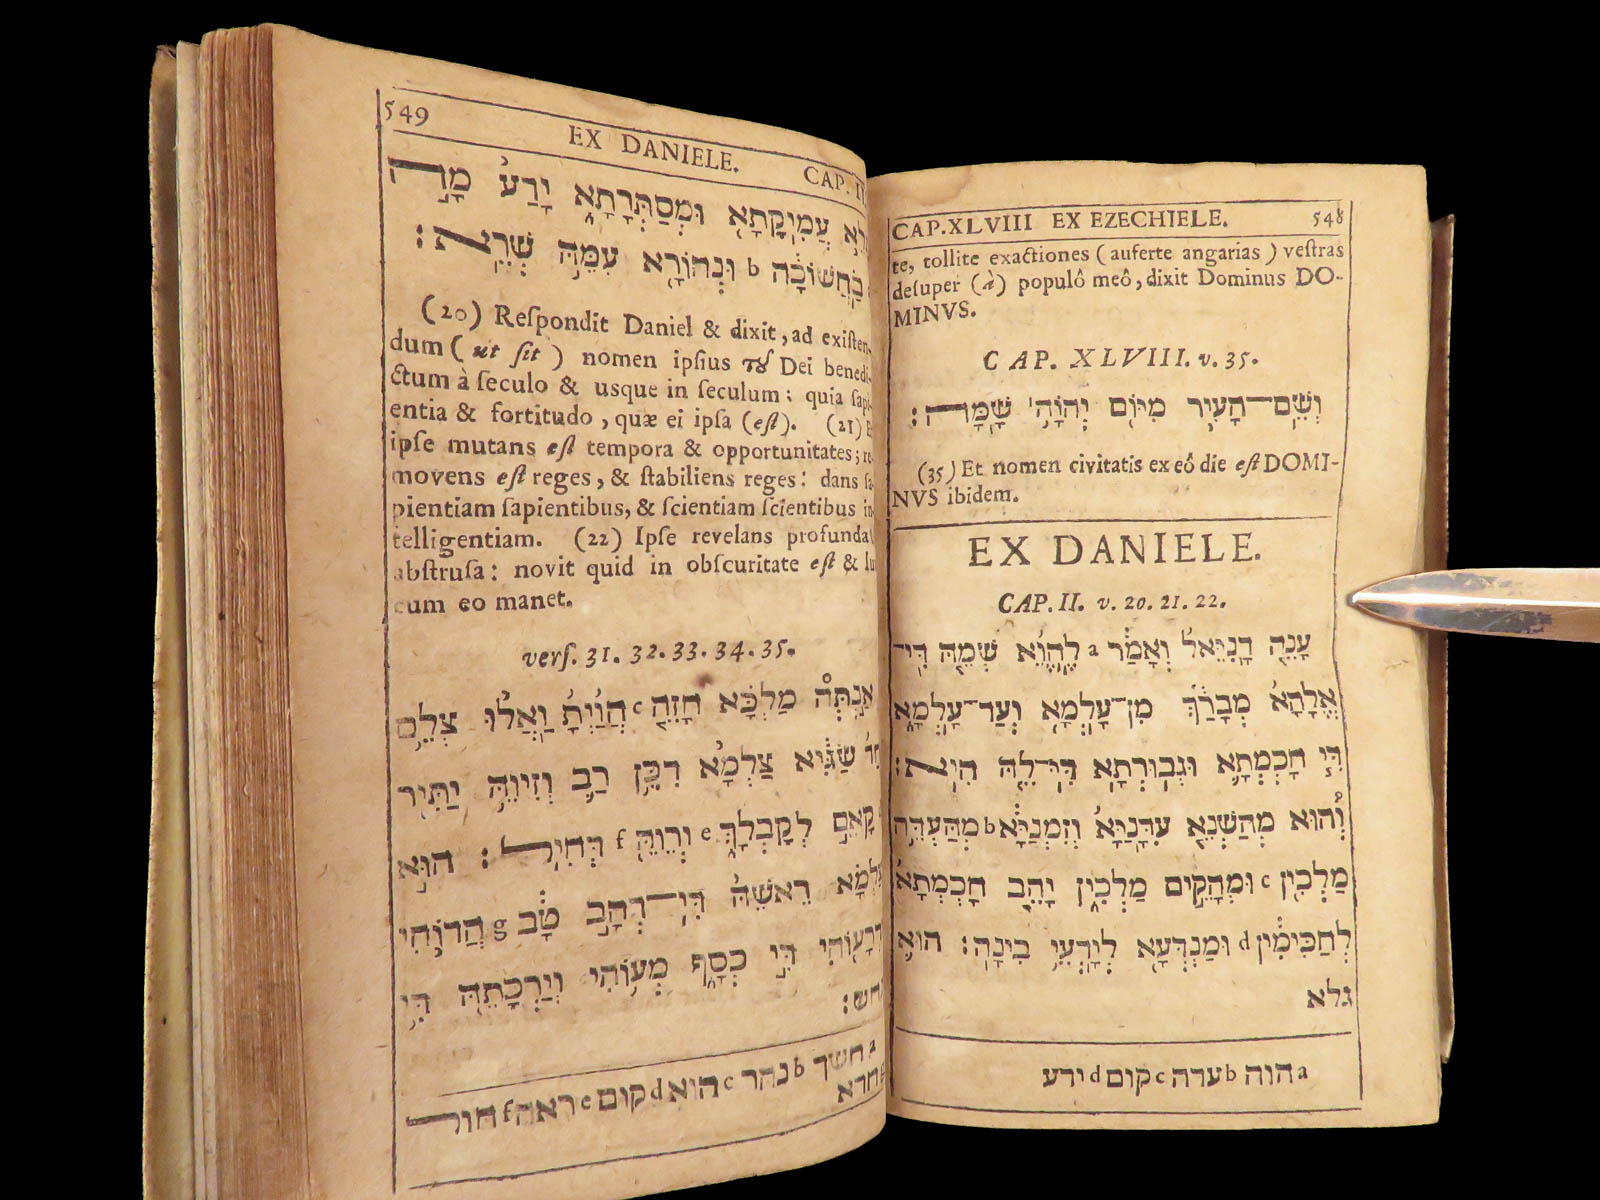 CAP.XLVIII EX EZECHIELE. 548
te, tollite exactiones (auferte angarias) veſtras
deſuper (à) populô meô, dixit Dominus DO-
MINVS.
CAP. XLVIII. v. 35.
וְשֵׁם־הָעִיר מִיּוֹם יְהוָֹה שָׁמָּה:
(35) Et nomen civitatis ex eô die eſt DOMI-
NVS ibidem.
EX DANIELE.
CAP. II. v. 20. 21. 22.
עָנֵה דָנִיֵּאל וְאָמַר a לֶהֱוֵא שְׁמֵהּ דִּי־
אֱלָהָא מְבָרַךְ מִן־עָלְמָא וְעַד־עָלְמָא
דִּי חָכְמְתָא וּגְבוּרְתָא דִּי־לֵהּ הִיא:
וְהוּא מְהַשְׁנֵא עִדָּנַיָּא וְזִמְנַיָּא b מְהַעְדֵּה
מַלְכִין c וּמְהָקֵים מַלְכִין יָהֵב חָכְמְתָא
לְחַכִּימִין d וּמַנְדְּעָא לְיָדְעֵי בִינָה: הוּא
גלא
a הוה b ערה c קום d ידע
549 EX DANIELE. CAP. II
עֲמִיקָתָא וּמְסַתְּרָתָא יָדַע מָה
בַחֲשׁוֹכָה b וּנְהוֹרָא עִמֵּהּ שְׁרֵא:
(20) Reſpondit Daniel & dixit, ad exiſten-
dum (ut ſit) nomen ipſius τȣ Dei benedi-
ctum à ſeculo & usque in ſeculum: quia ſapi-
entia & fortitudo, quæ ei ipſa (eſt). (21) E
ipſe mutans eſt tempora & opportunitates; re-
movens eſt reges, & ſtabiliens reges: dans ſa-
pientiam ſapientibus, & ſcientiam ſcientibus in-
telligentiam. (22) Ipſe revelans profunda
abſtruſa: novit quid in obſcuritate eſt & lu
cum eo manet.
verſ. 31. 32. 33. 34. 35.
אַנְתְּה מַלְכָּא חָזֵה c הֲוַיְתָ וַאֲלוּ צְלֵם
חַד שַׂגִּיא צַלְמָא דִּכֵּן רַב וְזִיוֵהּ יַתִּיר
קָאֵם לְקָבְלָךְ e וְרֵוֵהּ f דְּחִיל: הוּא
צַלְמָא רֵאשֵׁהּ דִּי־דְהַב טָב g חֲדוֹהִי
וּדְרָעוֹהִי דִּי כְסַף מְעוֹהִי וְיַרְכָתֵהּ דִּי
נְחָשׁ:
a חשך b נהר c הוא d קום e ראה f חור
g חדא